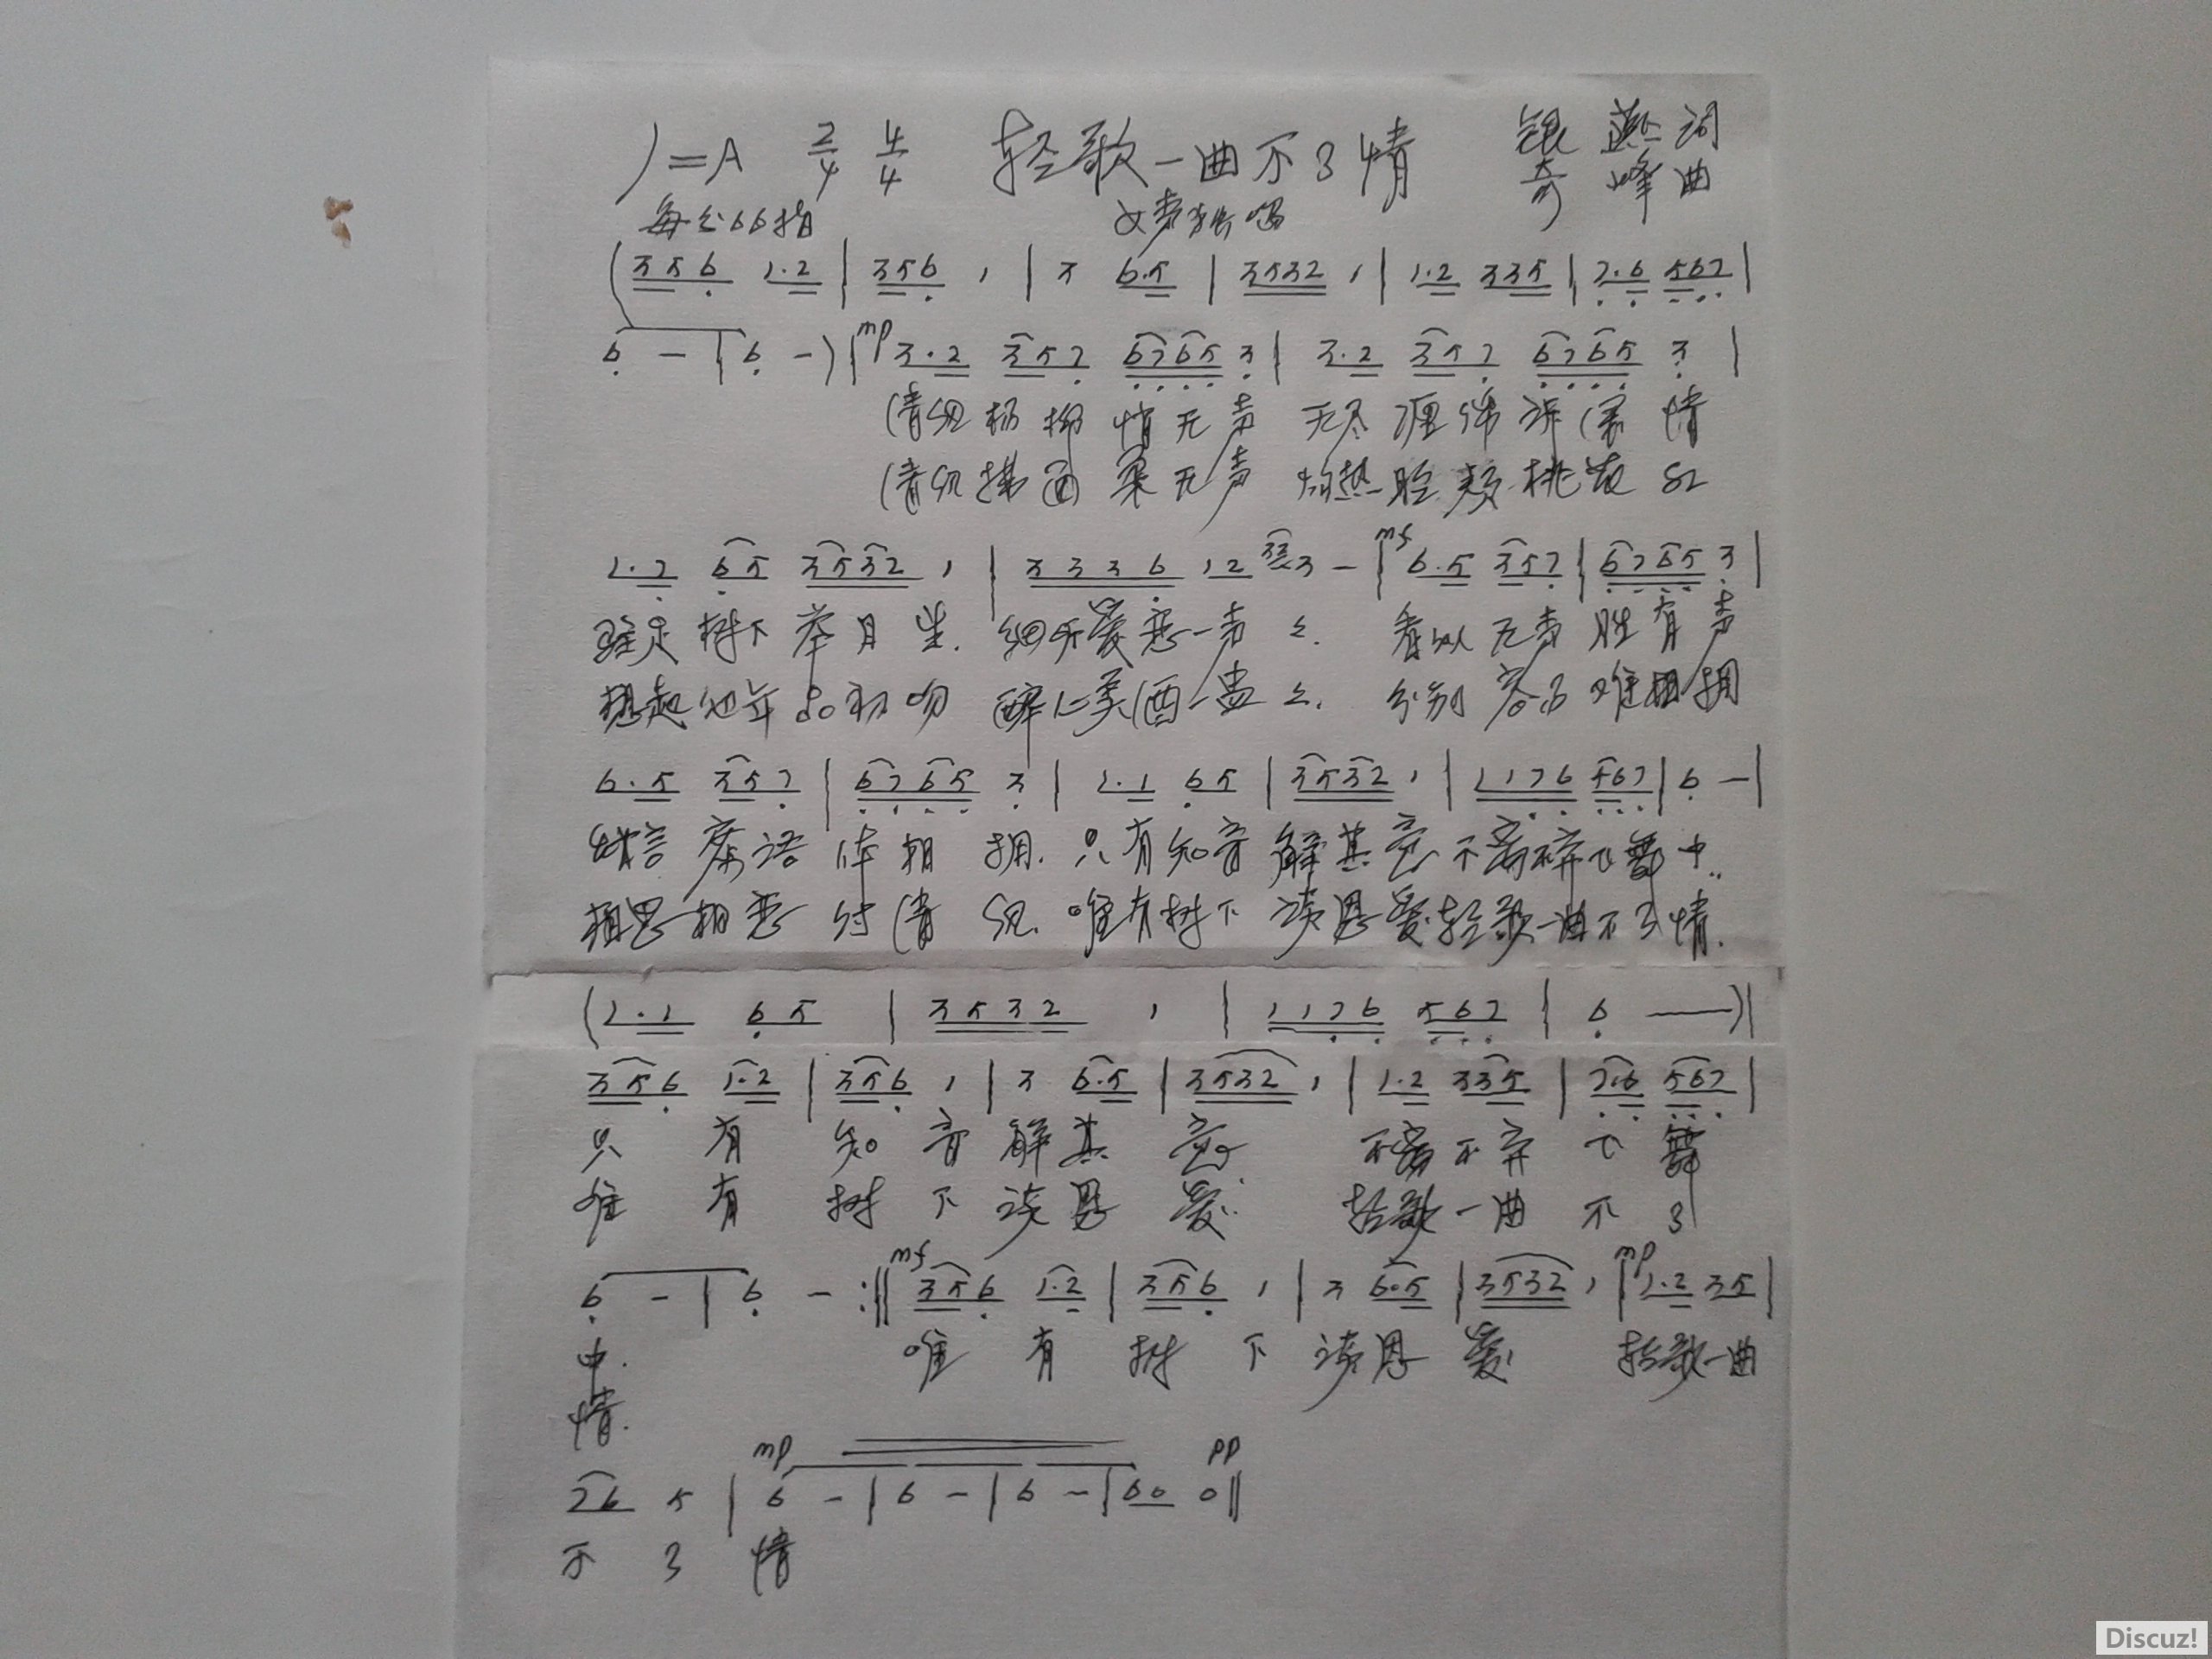 1=A 2/4 4/4 轻歌一曲不了情 银燕词
每分66拍 女声独唱 奇峰曲
(356 1·2 | 356 1 | 3 6·5 | 3532 1 | 1·2 335 | 7·6 567 |
6 - | 6 -) | mp 3·2 357 6765 3 | 3·2 357 6765 3 |
情无声 无尽 情
面柔无声 灼热脸颊桃花红
1·7 65 3532 1 | 3336 12 33 3 - | mf 6·5 357 | 6765 3 |
树下举月 细听爱恋一声声. 看似无声胜有声
想起 年 初吻 醉人美酒一盅盅. 分别 难相拥
6·5 357 | 6765 3 | 1·1 65 | 3532 1 | 1176 567 | 6 - |
语 相拥. 只有知音解其意不离不弃飞舞中.
相思相恋 唯有树下谈恩爱轻歌一曲不了情.
(1·1 65 | 3532 1 | 1176 567 | 6 —) |
356 1·2 | 356 1 | 3 6·5 | 3532 1 | 1·2 335 | 7·6 567 |
只有知音解其意 不离不弃飞舞
唯有树下谈恩爱 轻歌一曲不了
6 - | 6 - :‖ mf 356 1·2 | 356 1 | 3 6·5 | 3532 1 | mp 1·2 35 |
中. 唯有树下谈恩爱 轻歌一曲
情.
76 5 | mp 6 - | 6 - | 6 - | 60 pp 0 ‖
不了情
Discuz!